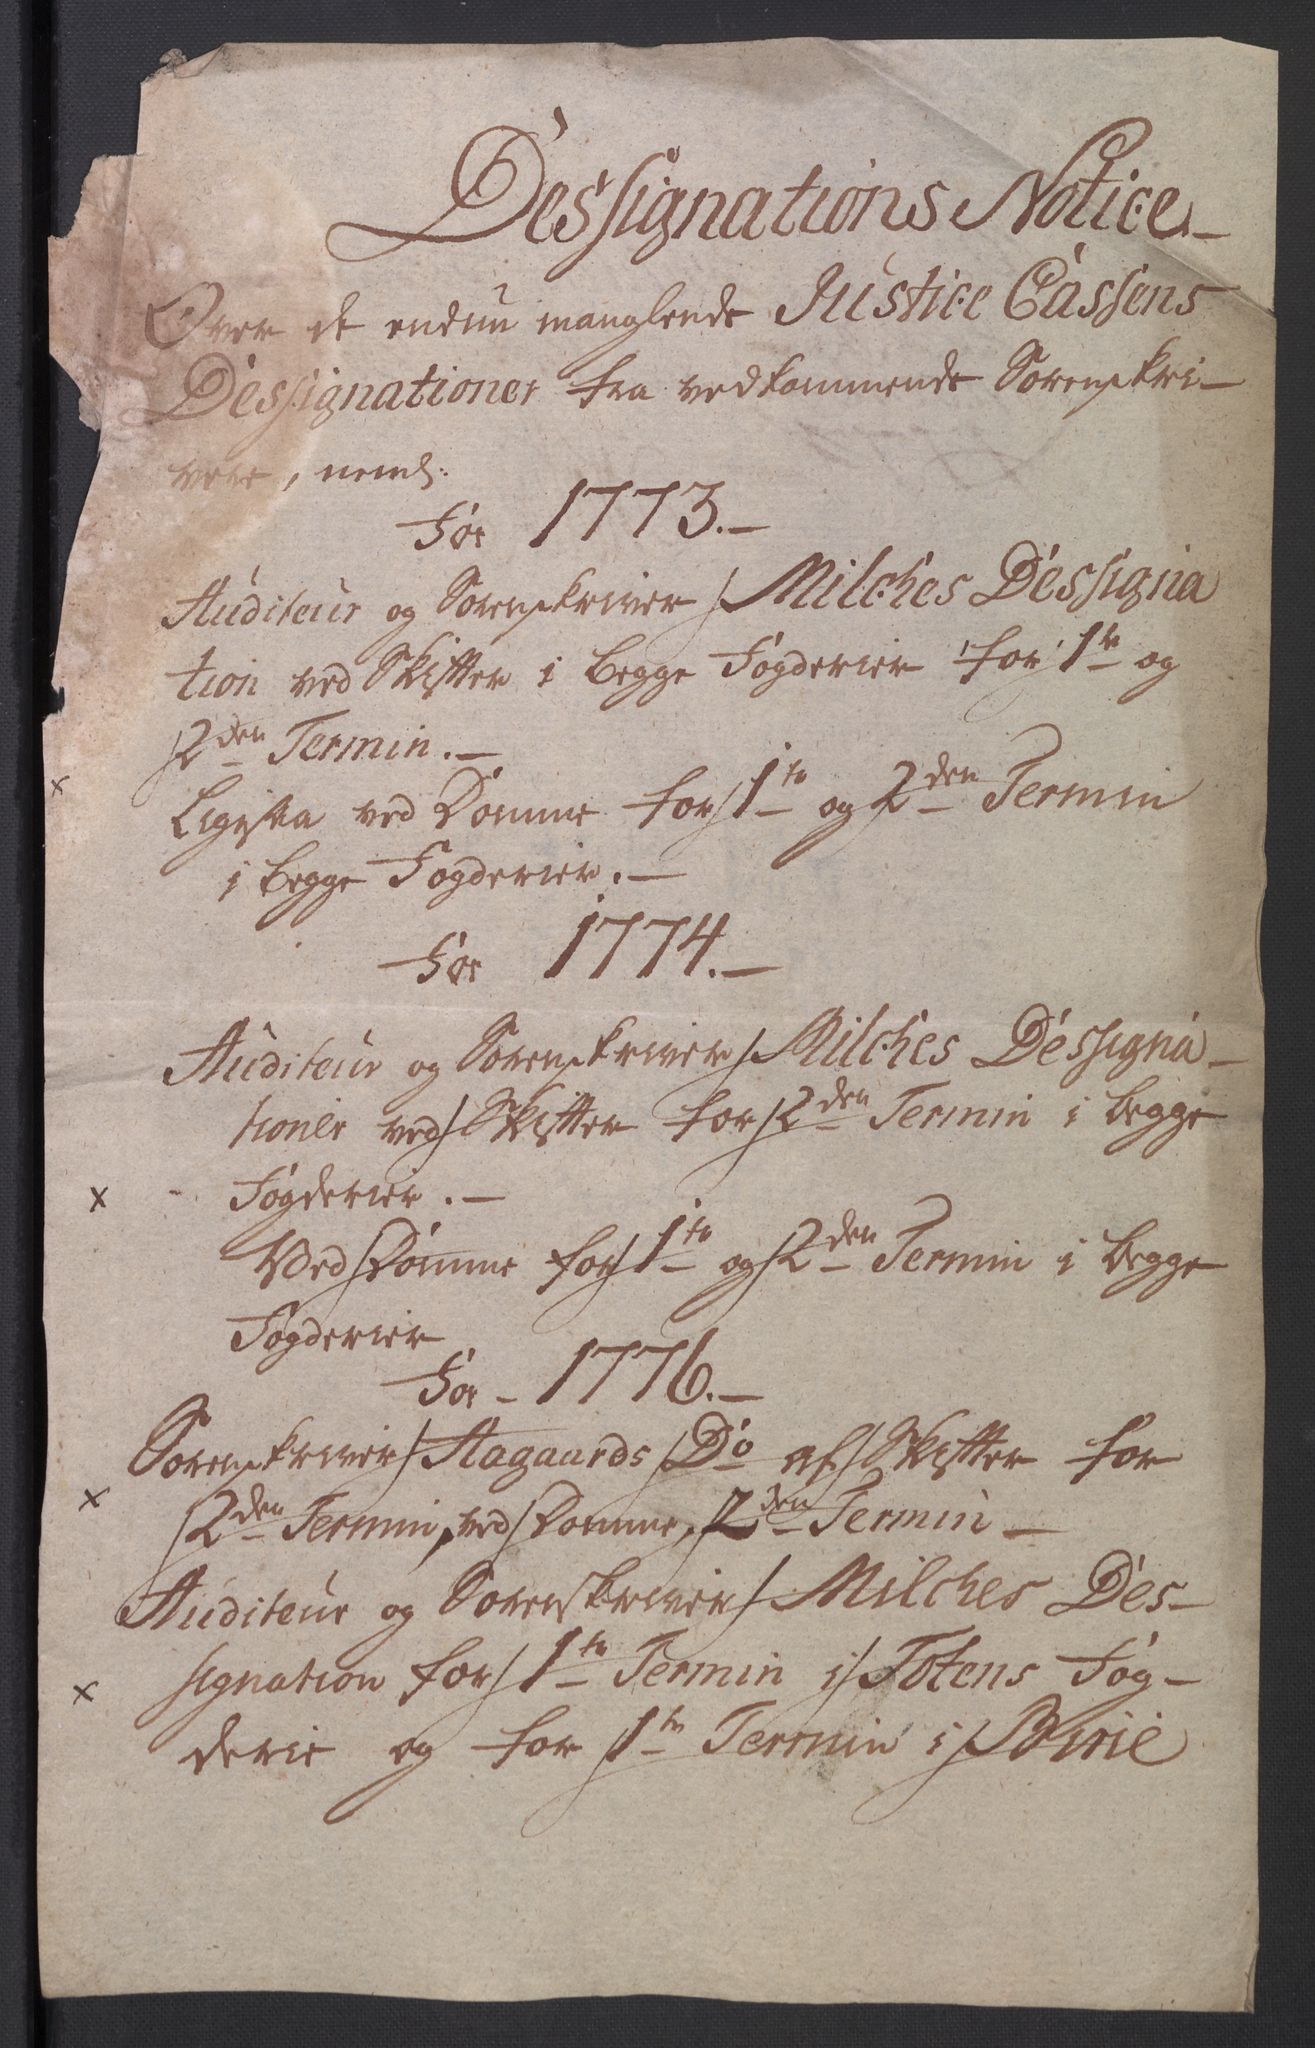 Dessignations Notice
Over de endnu manglende Justice Cassens
Dessignationer fra vedkommende Sorenskri-
vere, neml:
For 1773.
Auditeur og Sorenskriver Milches Dessigna
tion ved Skifter i begge Fogderier for 1te og
2den Termin.
x Ligesaa ved Domme for 1te og 2den Termin
i begge Fogderier.
For 1774.
Auditeur og Sorenskriver Milches Dessigna-
tioner ved Skifter for 2den Termin i begge
x Fogderier.
Ved Domme for 1te og 2den Termin i begge
Fogderier
For 1776.
Sorenskriver Aagaards Do af Skifter for
x 2den Termin, ved Domme, 2den Termin
Auditeur og Sorenskriver Milches Des-
x signation for 1te Termin i Totens Fog-
derie og for 1te Termin i Birie